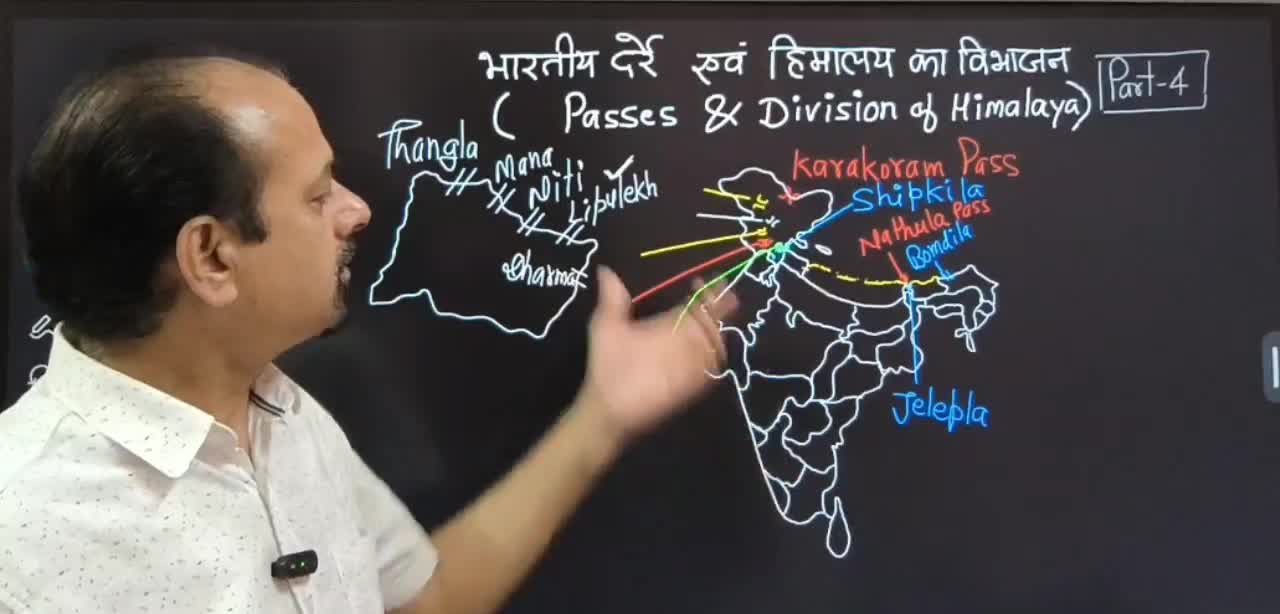 भारतीय दर्रे एवं हिमालय का विभाजन
( Passes & Division of Himalaya)
Part-4
Thangla
Mana
Niti
Lipulekh
Dharma
Karakoram Pass
Shipkila
Nathula Pass
Bomdila
Jelepla